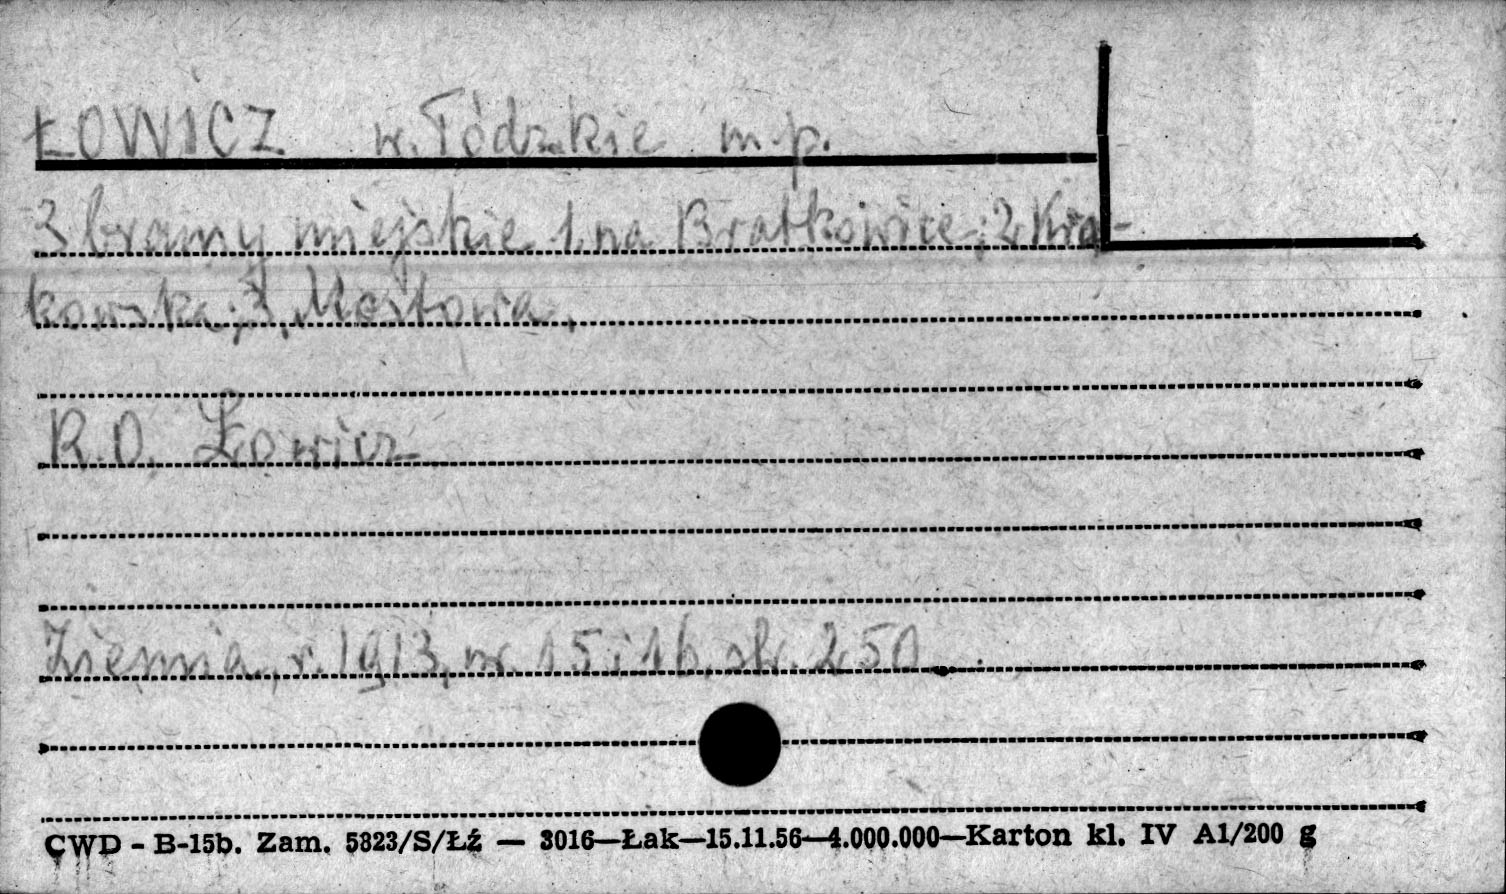 ŁOWICZ w. Łódzkie m.p.
3 bramy miejskie 1. na Bratkowice; 2. Kra-
kowska; 3. Mostowa.
R.D. Łowicz
Ziemia, r. 1913, nr. 15 i 16, str. 250.
CWD - B-15b. Zam. 5823/S/Łź — 3016—Łak—15.11.56—4.000.000—Karton kl. IV A1/200 g